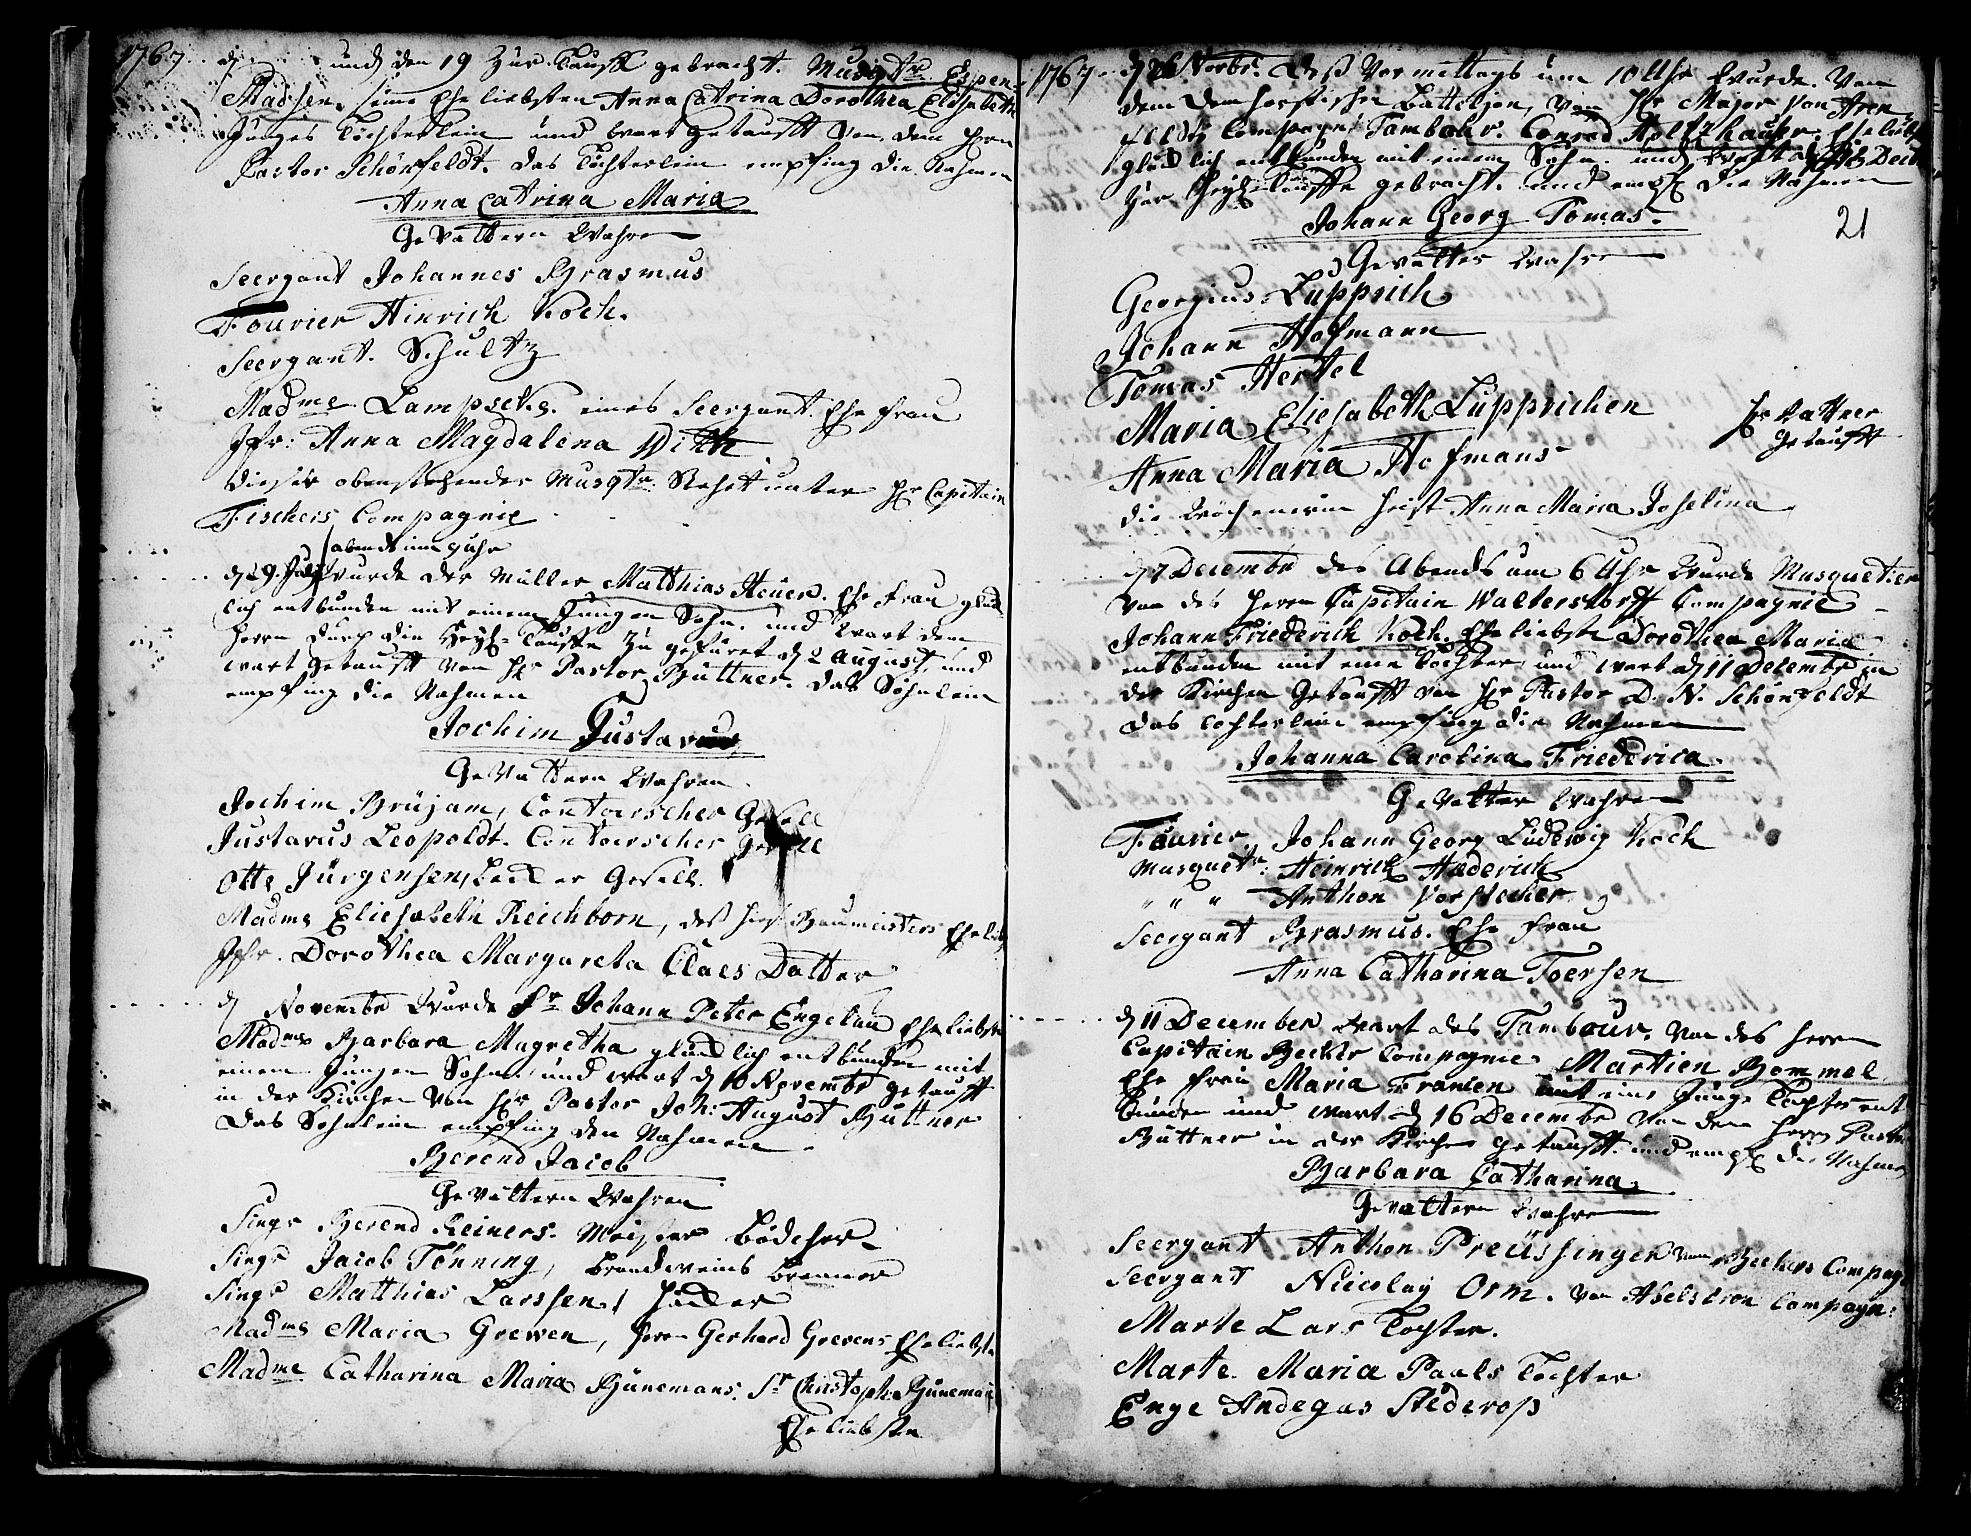 1767 d und den 19 zur Tauff gebracht. Musqtr Espen
Madsen. seine Eheliebsten Anna Catrina Dorothea Eliesabeth
Junges Töchterlein und wart getaufft von dem Hern
Pastor Schönfeldt. das Töchterlein empfing die Nahmen
Anna Catrina Maria
Gevattern Wahren
Seergant Johannes Brasmus
Fourier Hinrich Koch.
Seergant. Schultz
Madme Lampseths. eines Seergant. Ehe frau
Jfr: Anna Magdalena Dith
Dieser obenstehender Musqtr. Stehet unter Hr Capitain
Fischers Compagnie
abends um 9 uhr
d 29. July wurde der Müller Matthias Heuer. Ehe frau glück
lich entbunden mit einem Jungen Sohn. und wart dem
Herrn durch die Heyl: Tauffe zu gefüret d 2 August, und
wart getaufft von Hr Pastor Büttner. das Söhnlein
empfing die Nahmen
Jochim Gustavus
Gevattern Wahren
Jochim Brüjam, Contoirscher Gesell
Justavus Leopoldt. Contoirscher Gesell
Otto Jürgensen, Becker Gesell.
Madme Eliesabeth Reichborn, des Baumeisters Ehelieb
Jfr. Dorothea Margareta Claes Datter
d Novembr wurde Sr Johann Peter Engelau Eheliebste
Madme Barbara Magretha glücklich entbunden mit
einem Jungen Sohn, und wart d 10 Novembr getaufft
in der Kirchen von Hr Pastor Joh: August Büttner
das Sohnlein empfing den Nahmen
Berend Jacob
Gevattern Wahren
Singr Berend Reiners. Meister Bödcher
Singr Jacob Tönning, Brandweins Brenner
Singr Matthias Larssen, Höcker
Madme Maria Grewen, Herrn Gerhard Grevens Eheliebste
Madme Catharina Maria Bünemans. Sr Christoph Bünemans
Eheliebsten
1767 d 26 Novbr. des Vormittags um 10 Uhr wurde. Von
dem Battelion, von Hr Major von Aren
Compagni Tambohr. Conrad Holtzhauser Ehe liebste
glücklich entbunden mit einem Sohn. und wart d Decbr
Zur Heyl: Tauffe gebracht. und empf die Nahmen
Johann Georg Tomas.
21
Gevatter Wahren
Georgius Luppricht
Johann Hofmann
Tomas Hertel
Maria Eliesabeth Lupprichen
Hr Büttner
Getaufft
Anna Maria Hofmans
die Wöchnerin heist Anna Maria Joselina
d 7 Decembr des Abends um 6 Uhr wurde Musquetier
von des Herrn Capitain Walterstorff Compagnie
Johann Friederich Koch. Eheliebste Dorothea Maria
entbunden mit eine Tochter, und wart d 11 Decembr in
der Kirchen Getaufft von Hr Pastor D. N. Schönfeldt
das Töchterlein empfing die Nahmen
Johanna Carolina Friederica
Gevatter Wahren
Fourier, Johann Georg Ludewig Koch
Musquetr. Heinrich Hederich
" " " Anthon Vorstecher
Seergant Brasmus. Ehe frau
Anna Catharina Toersen
d 11 December wart des Tambour. von des Herrn
Capitain Becker Compagnie. Martien Bommel
Ehe frau Maria Franlen mit eine Junge Tochter ent
bunden und wart d 16 Decembr von dem Herrn Pastor
Büttner in der Kirche getaufft. und empf die Nahmen
Barbara Catharina
Gevattern Wahren
Seergant Anthon Preüssinger von Beckers Compag
Seergant Niicolay Orm. von Abelstion Compagn:
Marte Lars Tochter.
Marte Maria Paals Tochter
Enge Andegas Stederop